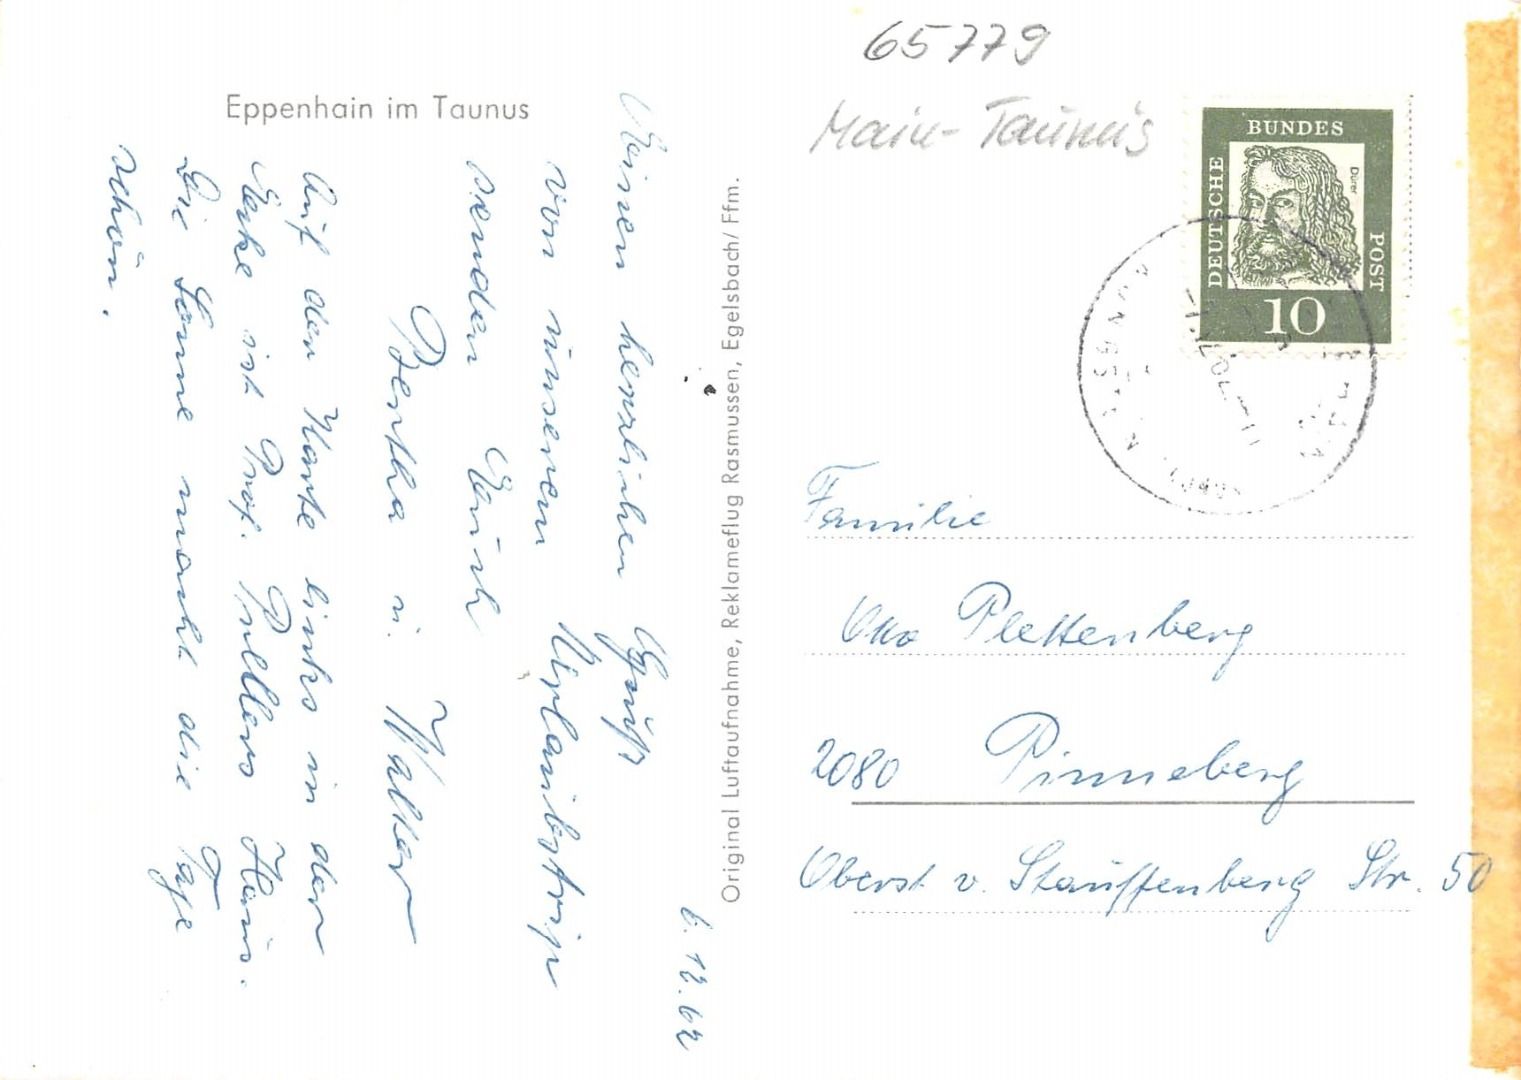 65779
Main-Taunus
Eppenhain im Taunus
6.12.62
Einen herzlichen Gruß
von unserem Urlaubstrip
senden Euch
Bertha u. Walter
Auf der Karte links in der
Ecke ist Prof. Haus.
Die Sonne macht die Tage
schön.
Original Luftaufnahme, Reklameflug Rasmussen, Egelsbach/Ffm.
DEUTSCHE
BUNDES
POST
Dürer
10
Familie
Otto Plettenberg
2080 Pinneberg
Oberst v. Stauffenberg Str. 50